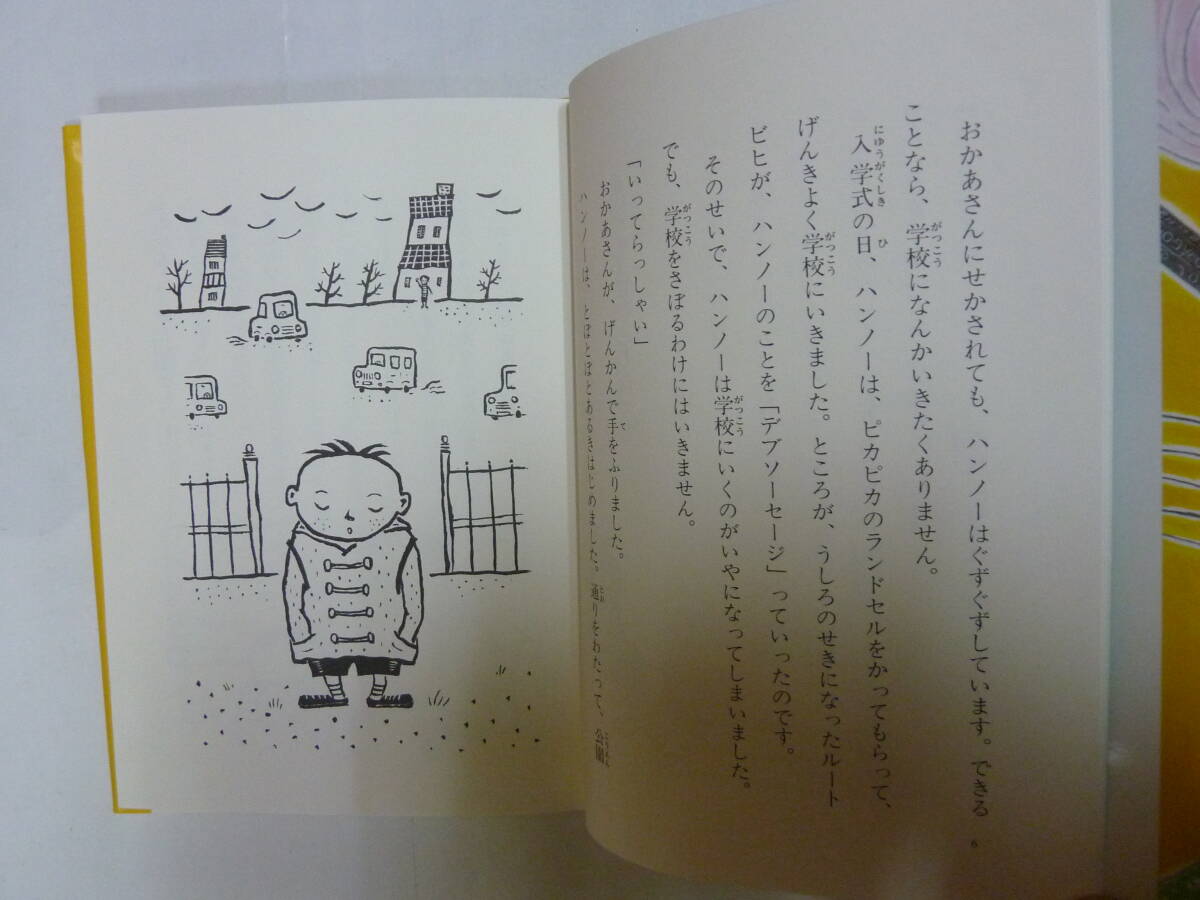 おかあさんにせかされても、ハンノーはぐずぐずしています。できる
ことなら、学校になんかいきたくありません。
入学式の日、ハンノーは、ピカピカのランドセルをかってもらって、
げんきよく学校にいきました。ところが、うしろのせきになったルート
ビヒが、ハンノーのことを「デブソーセージ」っていったのです。
そのせいで、ハンノーは学校にいくのがいやになってしまいました。
でも、学校をさぼるわけにはいきません。
「いってらっしゃい」
おかあさんが、げんかんで手をふりました。
ハンノーは、とぼとぼとあるきはじめました。通りをわたって、公園
6